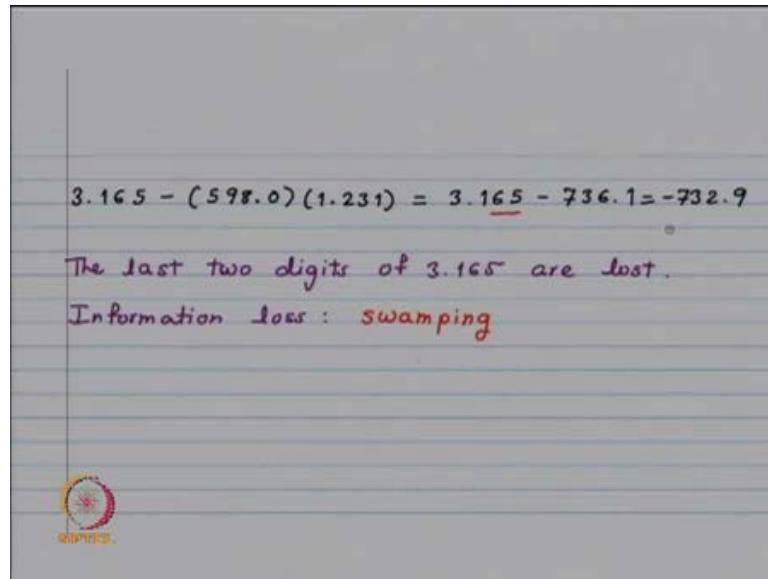 3.165 - (598.0)(1.231) = 3.165 - 736.1 = -732.9
The last two digits of 3.165 are lost.
Information loss : swamping
NPTEL